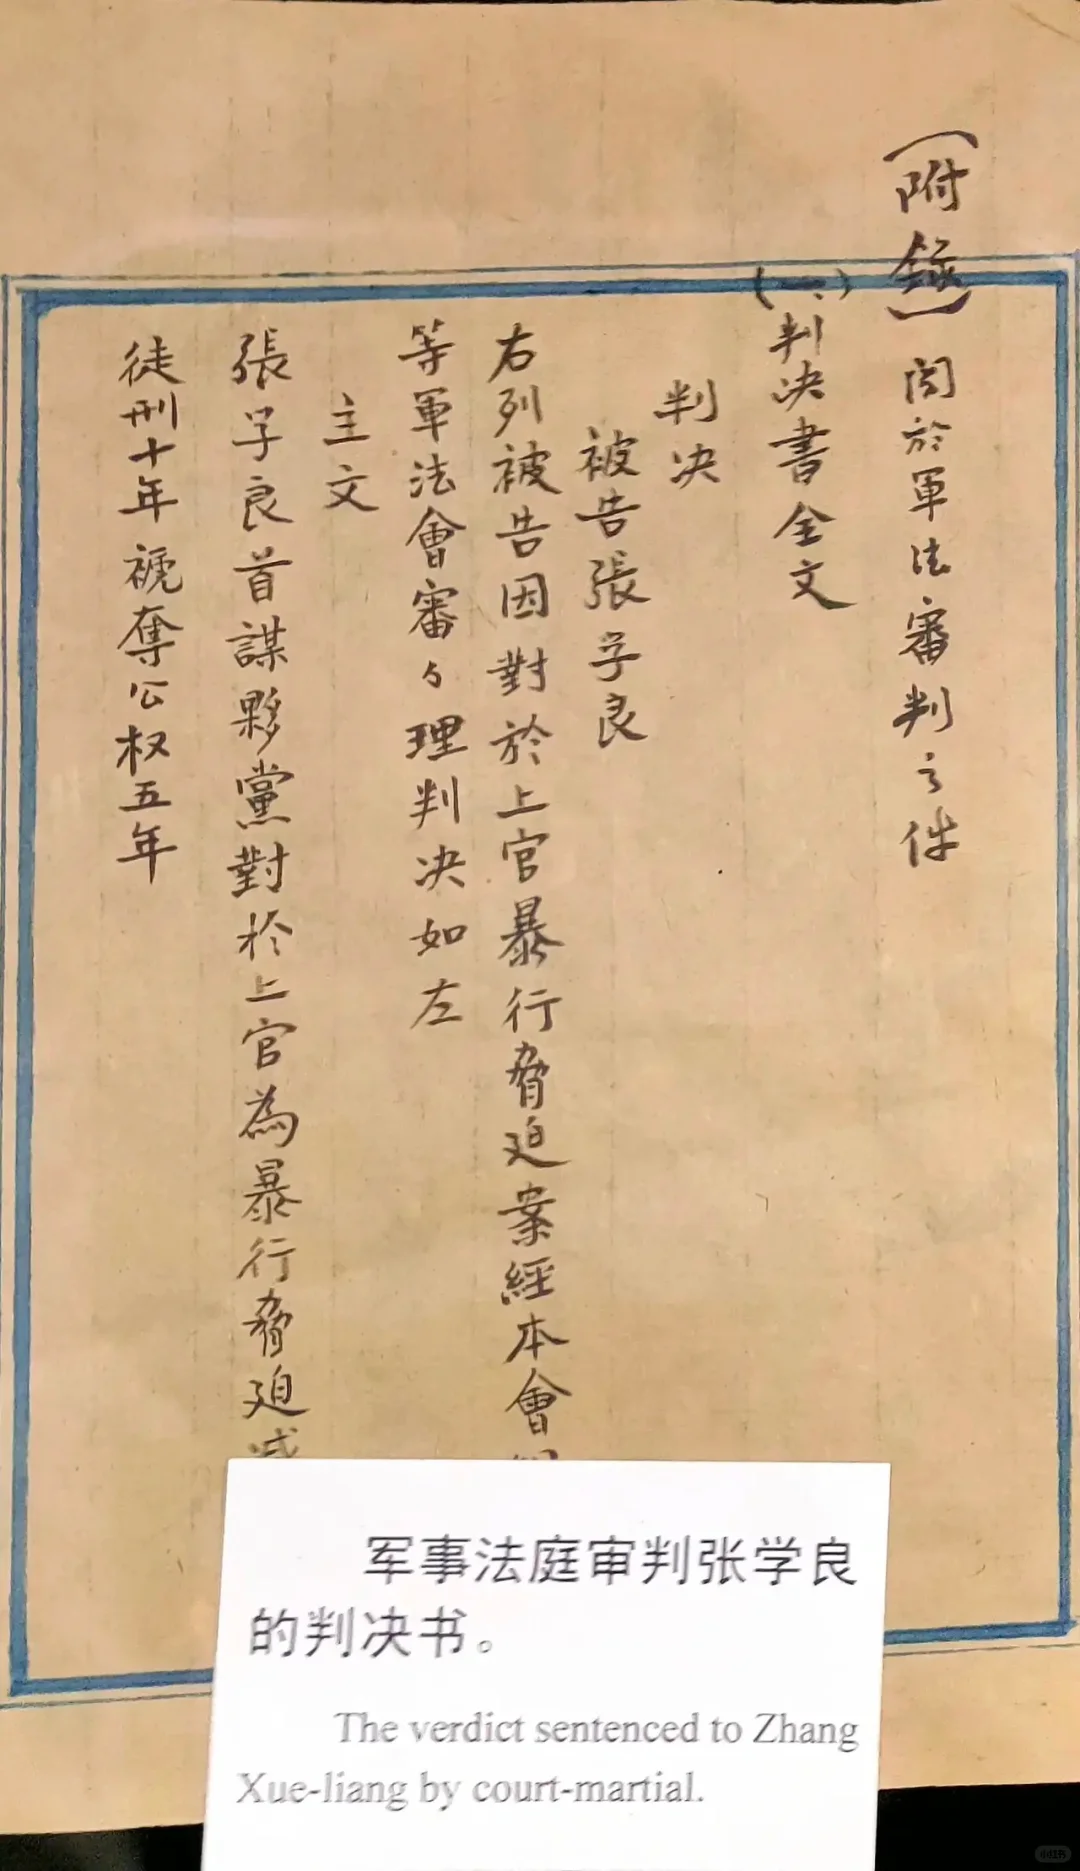 （附錄）関於軍法審判之件
（一）判决書全文
判决
被告張学良
右列被告因對於上官暴行脅迫案經本會
等軍法會審々理判决如左
主文
張学良首謀夥黨對於上官為暴行脅迫减
徒刑十年褫奪公权五年
军事法庭审判张学良
的判决书。
The verdict sentenced to Zhang
Xue-liang by court-martial.
小红书